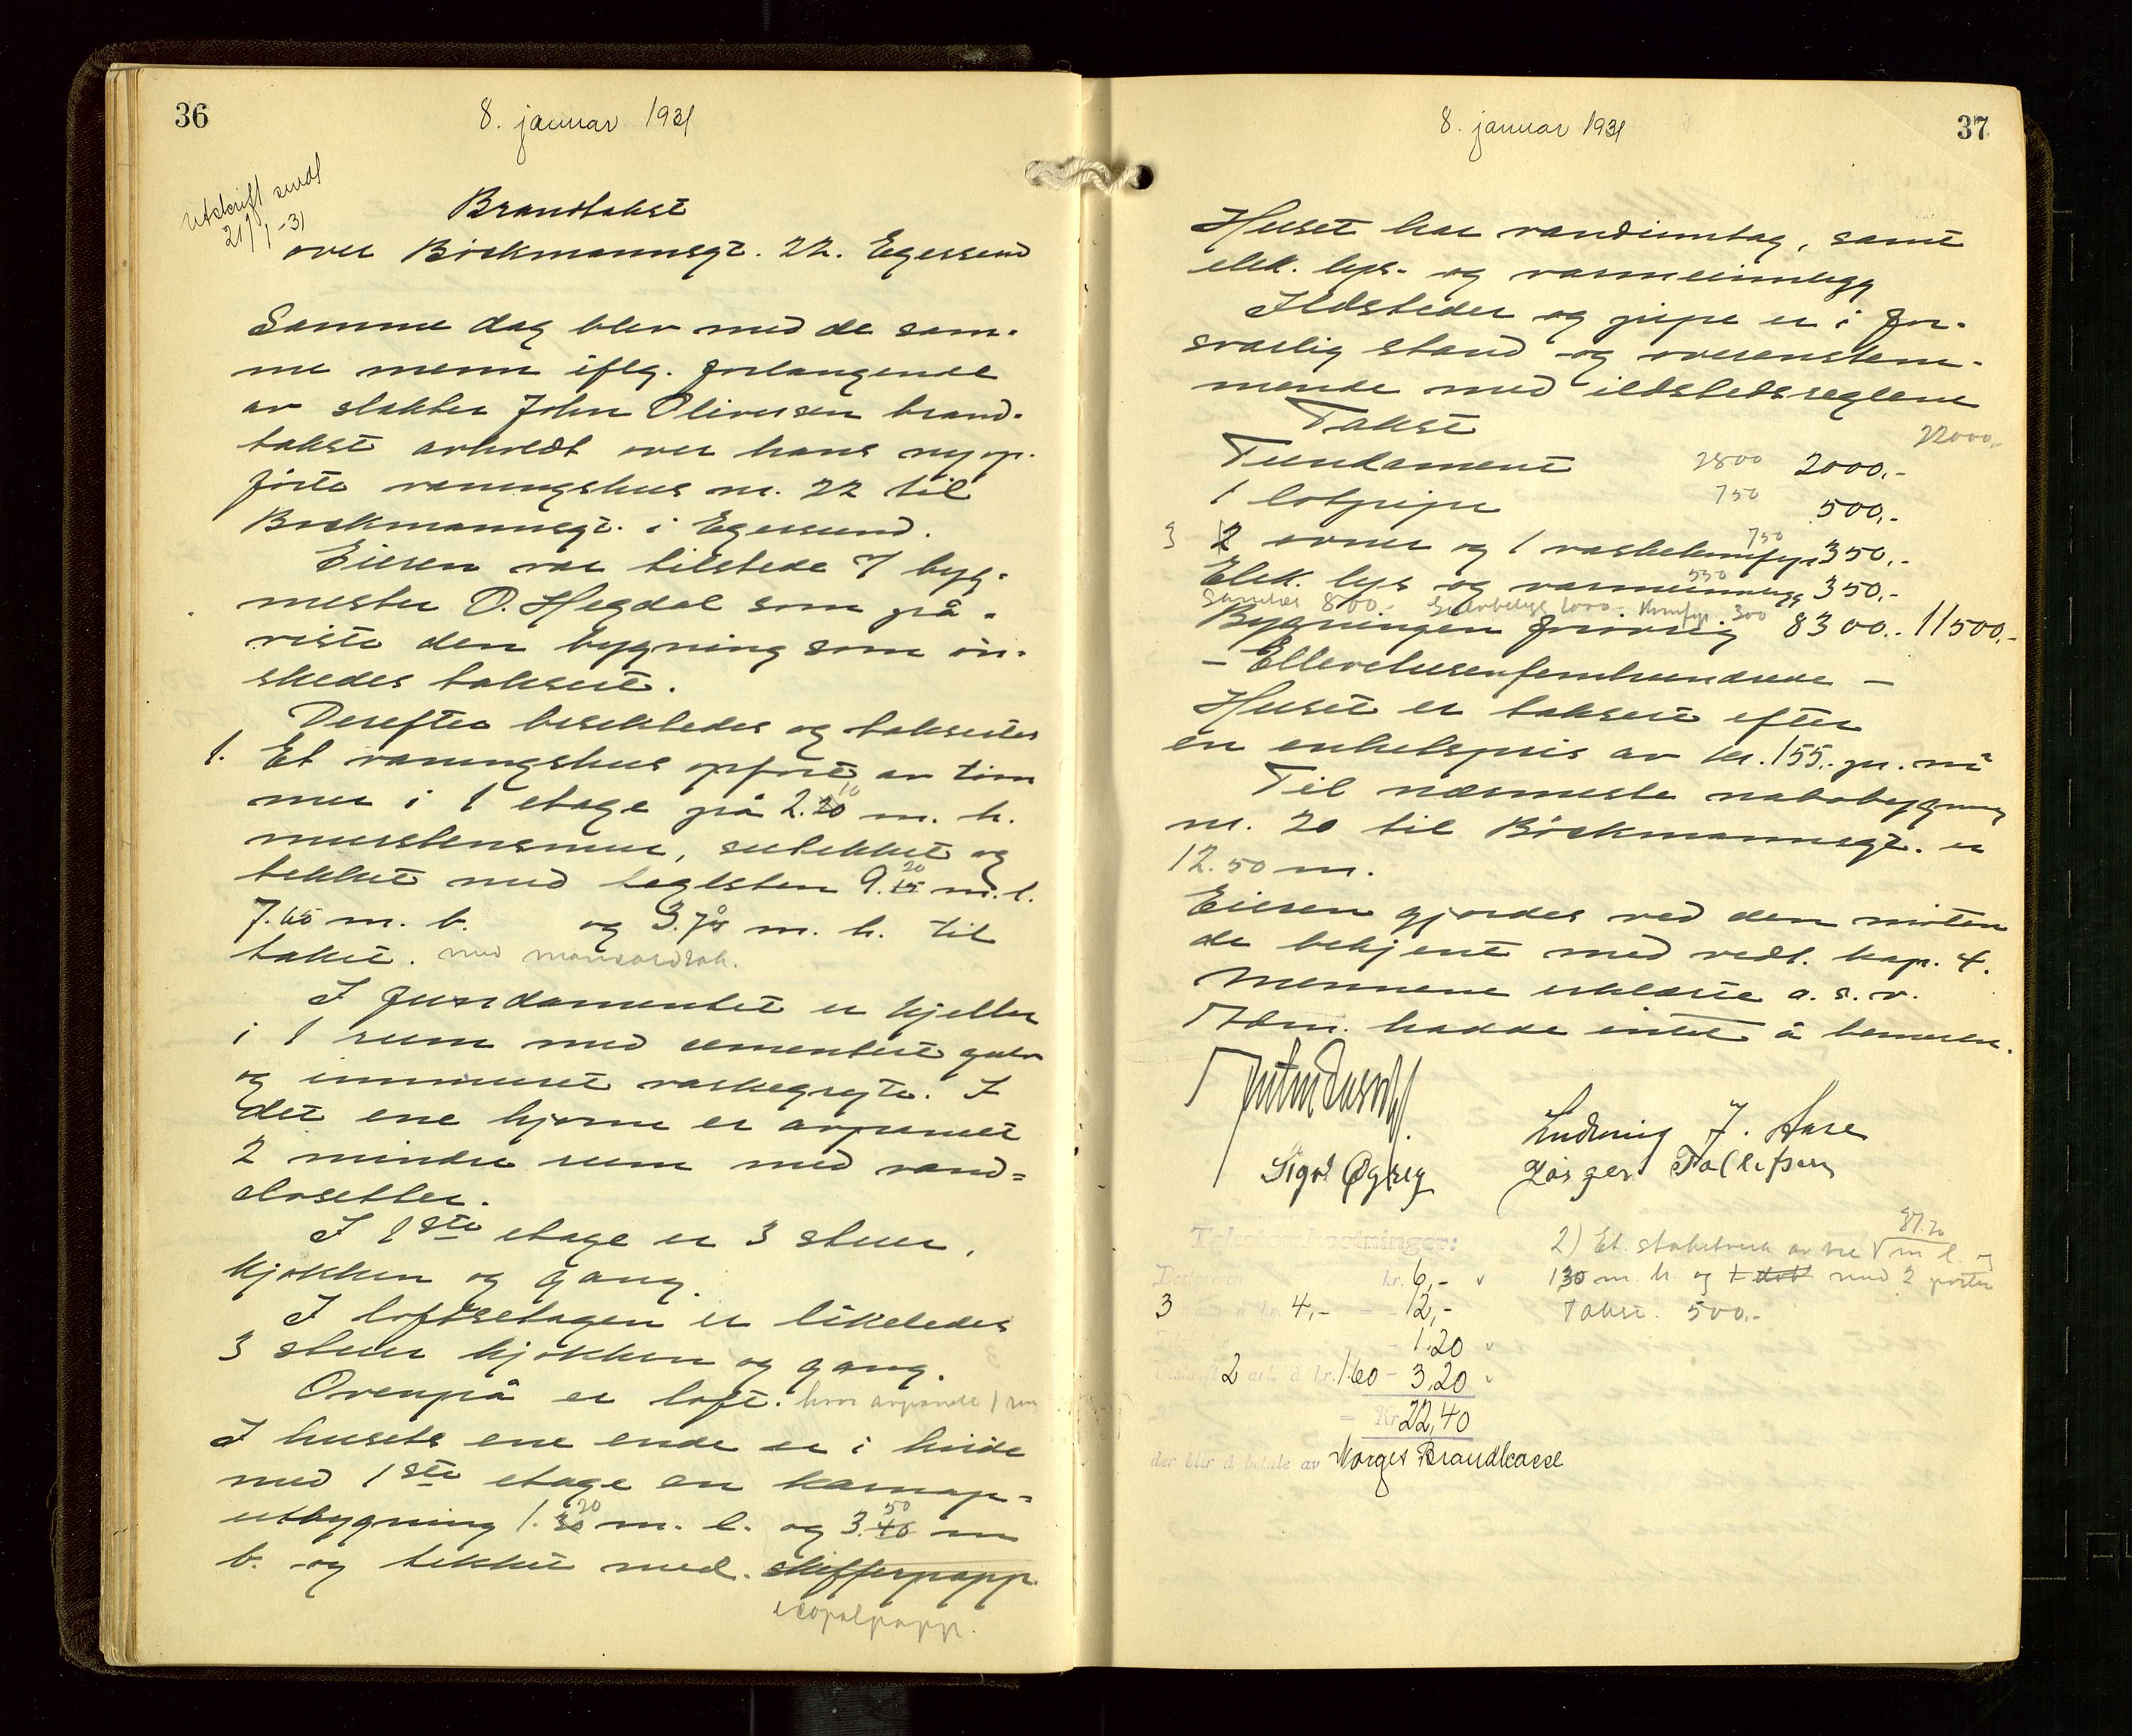 36
8. januar 1931
Utskrift sendt
21/1-31
Brandtakst
over Böckmannsgt. 22. Egersund
Samme dag blev med de sam-
me menn iflg. forlangende
av slakter John Oliversen brand-
takst avholdt over hans nyop-
førte vaaningshus nr. 22 til
Bøckmannsgt. i Egersund.
Eieren var tilstede v/ byg-
mester O. Hegdal som på-
viste den bygning som øn-
skedes taksert.
Derefter besiktedes og taksertes
1. Et vaningshus opført av töm
mer i 1 etage på 2.20 10 m. h.
murstensmur, utekket og
tekket med taglsten 9.15 20 m. l.
7.65 m. b. og 3.70 m. h. til
taket. med mansardtak.
I fundamentet er kjeller
i 1 rum med cementert gulv
og innmuret vaskegryte. I
det ene hjørne er avpanelt
2 mindre rum med vand-
closetter.
I 1ste etage er 3 stuer,
kjøkken og gang.
I loftsetagen er likeledes
3 stuer kjøkken og gang.
Ovenpå er loft. hvor avpanelt 1 rum
I husets ene ende er i høide
med 1ste etage en karnap-
utbygning 1.30 20 m. l. og 3.40 50 m
b. og tekket med skifferpapp.
icopalpapp.
37
8. januar 1931
Huset har vandinntag, samt
elek. lys- og varmeinnlegg
Ildsteder og pipe er i for-
svarlig stand og overenstem-
mende med ildstedsreglene
Takst
22000.-
Fundament 2800 2000,-
1 løtpipe 750 500,-
3 2 ovner og 1 vaskekumfyr 750 350,-
Elek. lys og varmeinnlegg 550 350,-
Sanitær 800.- 1000.- Komfyr. 300
Bygningen forøvrig 8300.. 11500,-
- Ellevetusenfemhundrede -
Huset er taksert efter
en enhetspris av kr. 155.- pr. m²
Til nærmeste nabobygning
nr. 20 til Böckmannsgt. er
12.50 m.
Eieren gjordes ved den møten
de bekjent med vedt. kap. 4.
Mennene erklærte a. s. v.
Adm. hadde intet å bemerke.
Ludvig J. Aase
Sigv. Øgreig
Asger Tollefsen
Takstomkostninger:
Bestyreren kr. 6,-
3 à kr. 4,- - 12,-
1.20
Utskrift 2 ark à kr. 1.60 - 3,20
= Kr. 22,40
der blir å betale av Norges Brandkasse
2) Et stakitverk av tre 87.20 m l. og
130 m. h og med 2 porter
Takst. 500.-